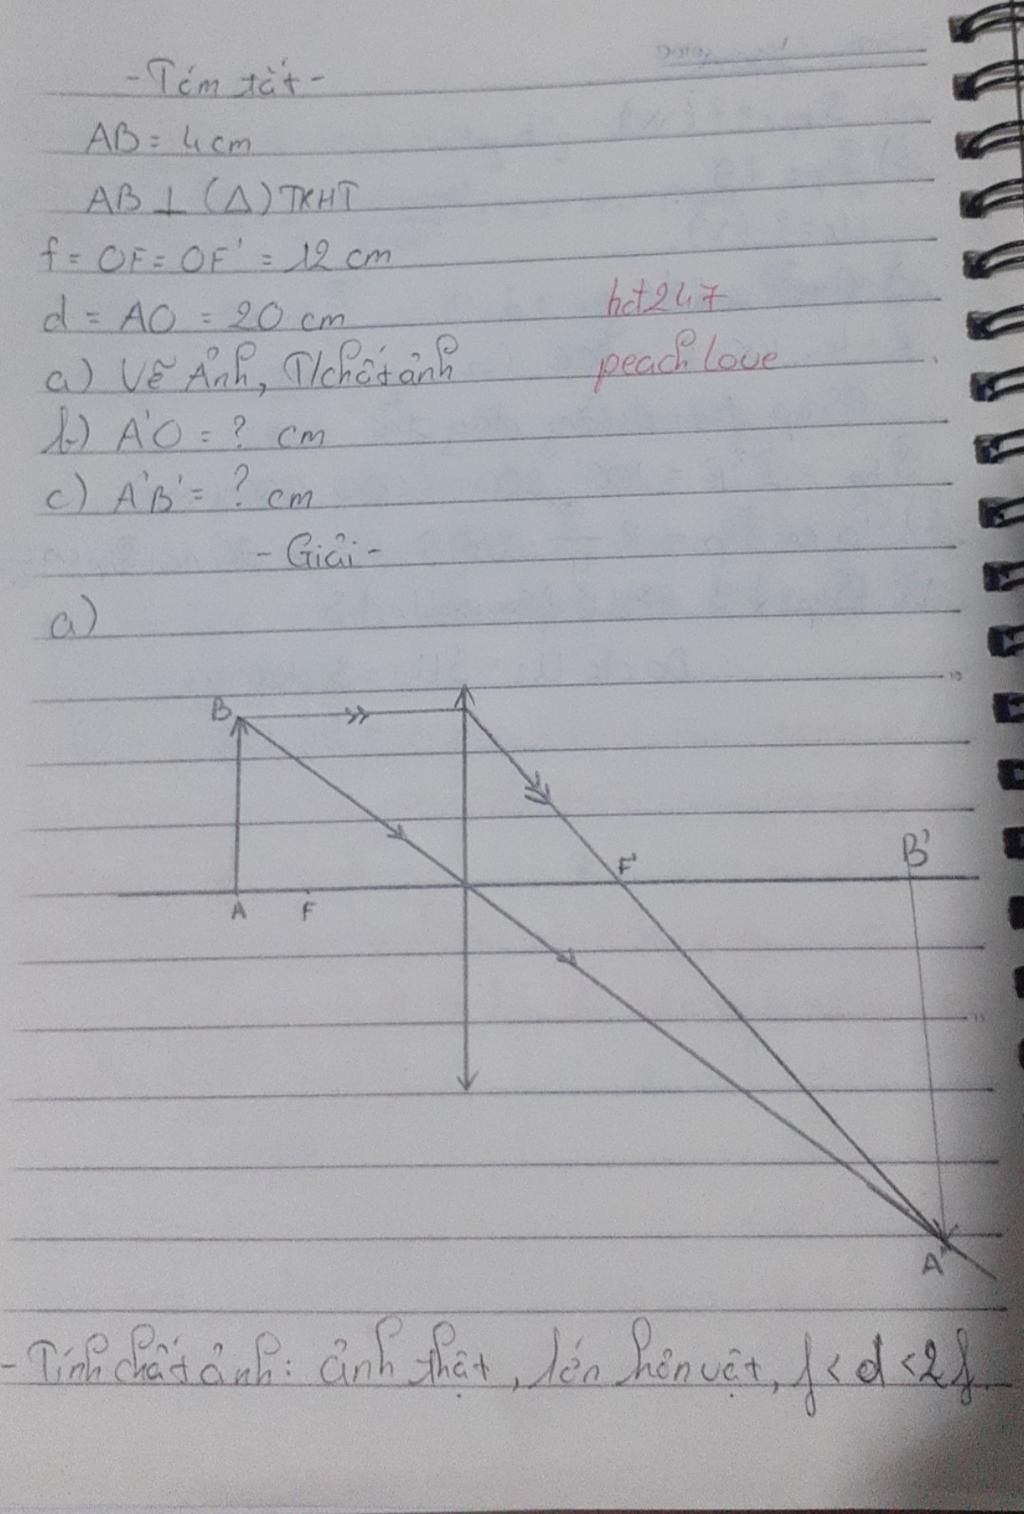 - Tóm tắt -
AB = 4 cm
AB ⊥ (Δ) TKHT
f = OF = OF' = 12 cm
d = AO = 20 cm
hd247
a) Vẽ Ảnh, T/chất ảnh
peach love
b) A'O = ? cm
c) A'B' = ? cm
- Giải -
a)
B
B'
F'
A F
A'
- Tính chất ảnh: ảnh thật, lớn hơn vật, f < d < 2f